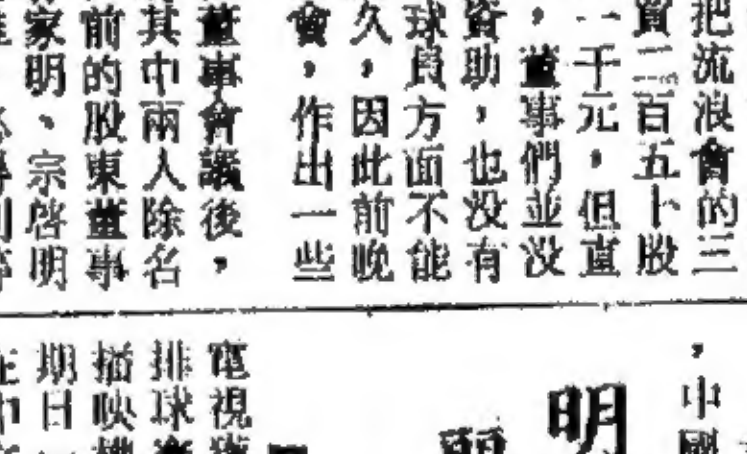 把流浪會的三
賣三百五十股
一千元，但直
，董事們並没
資助，也没有
球員方面不能
久，因此前晚
會，作出一些
董事會議後，
其中兩人除名
前的股東董事
家明、宗啓明
，中國
明
電視
排球
播映機
期日一